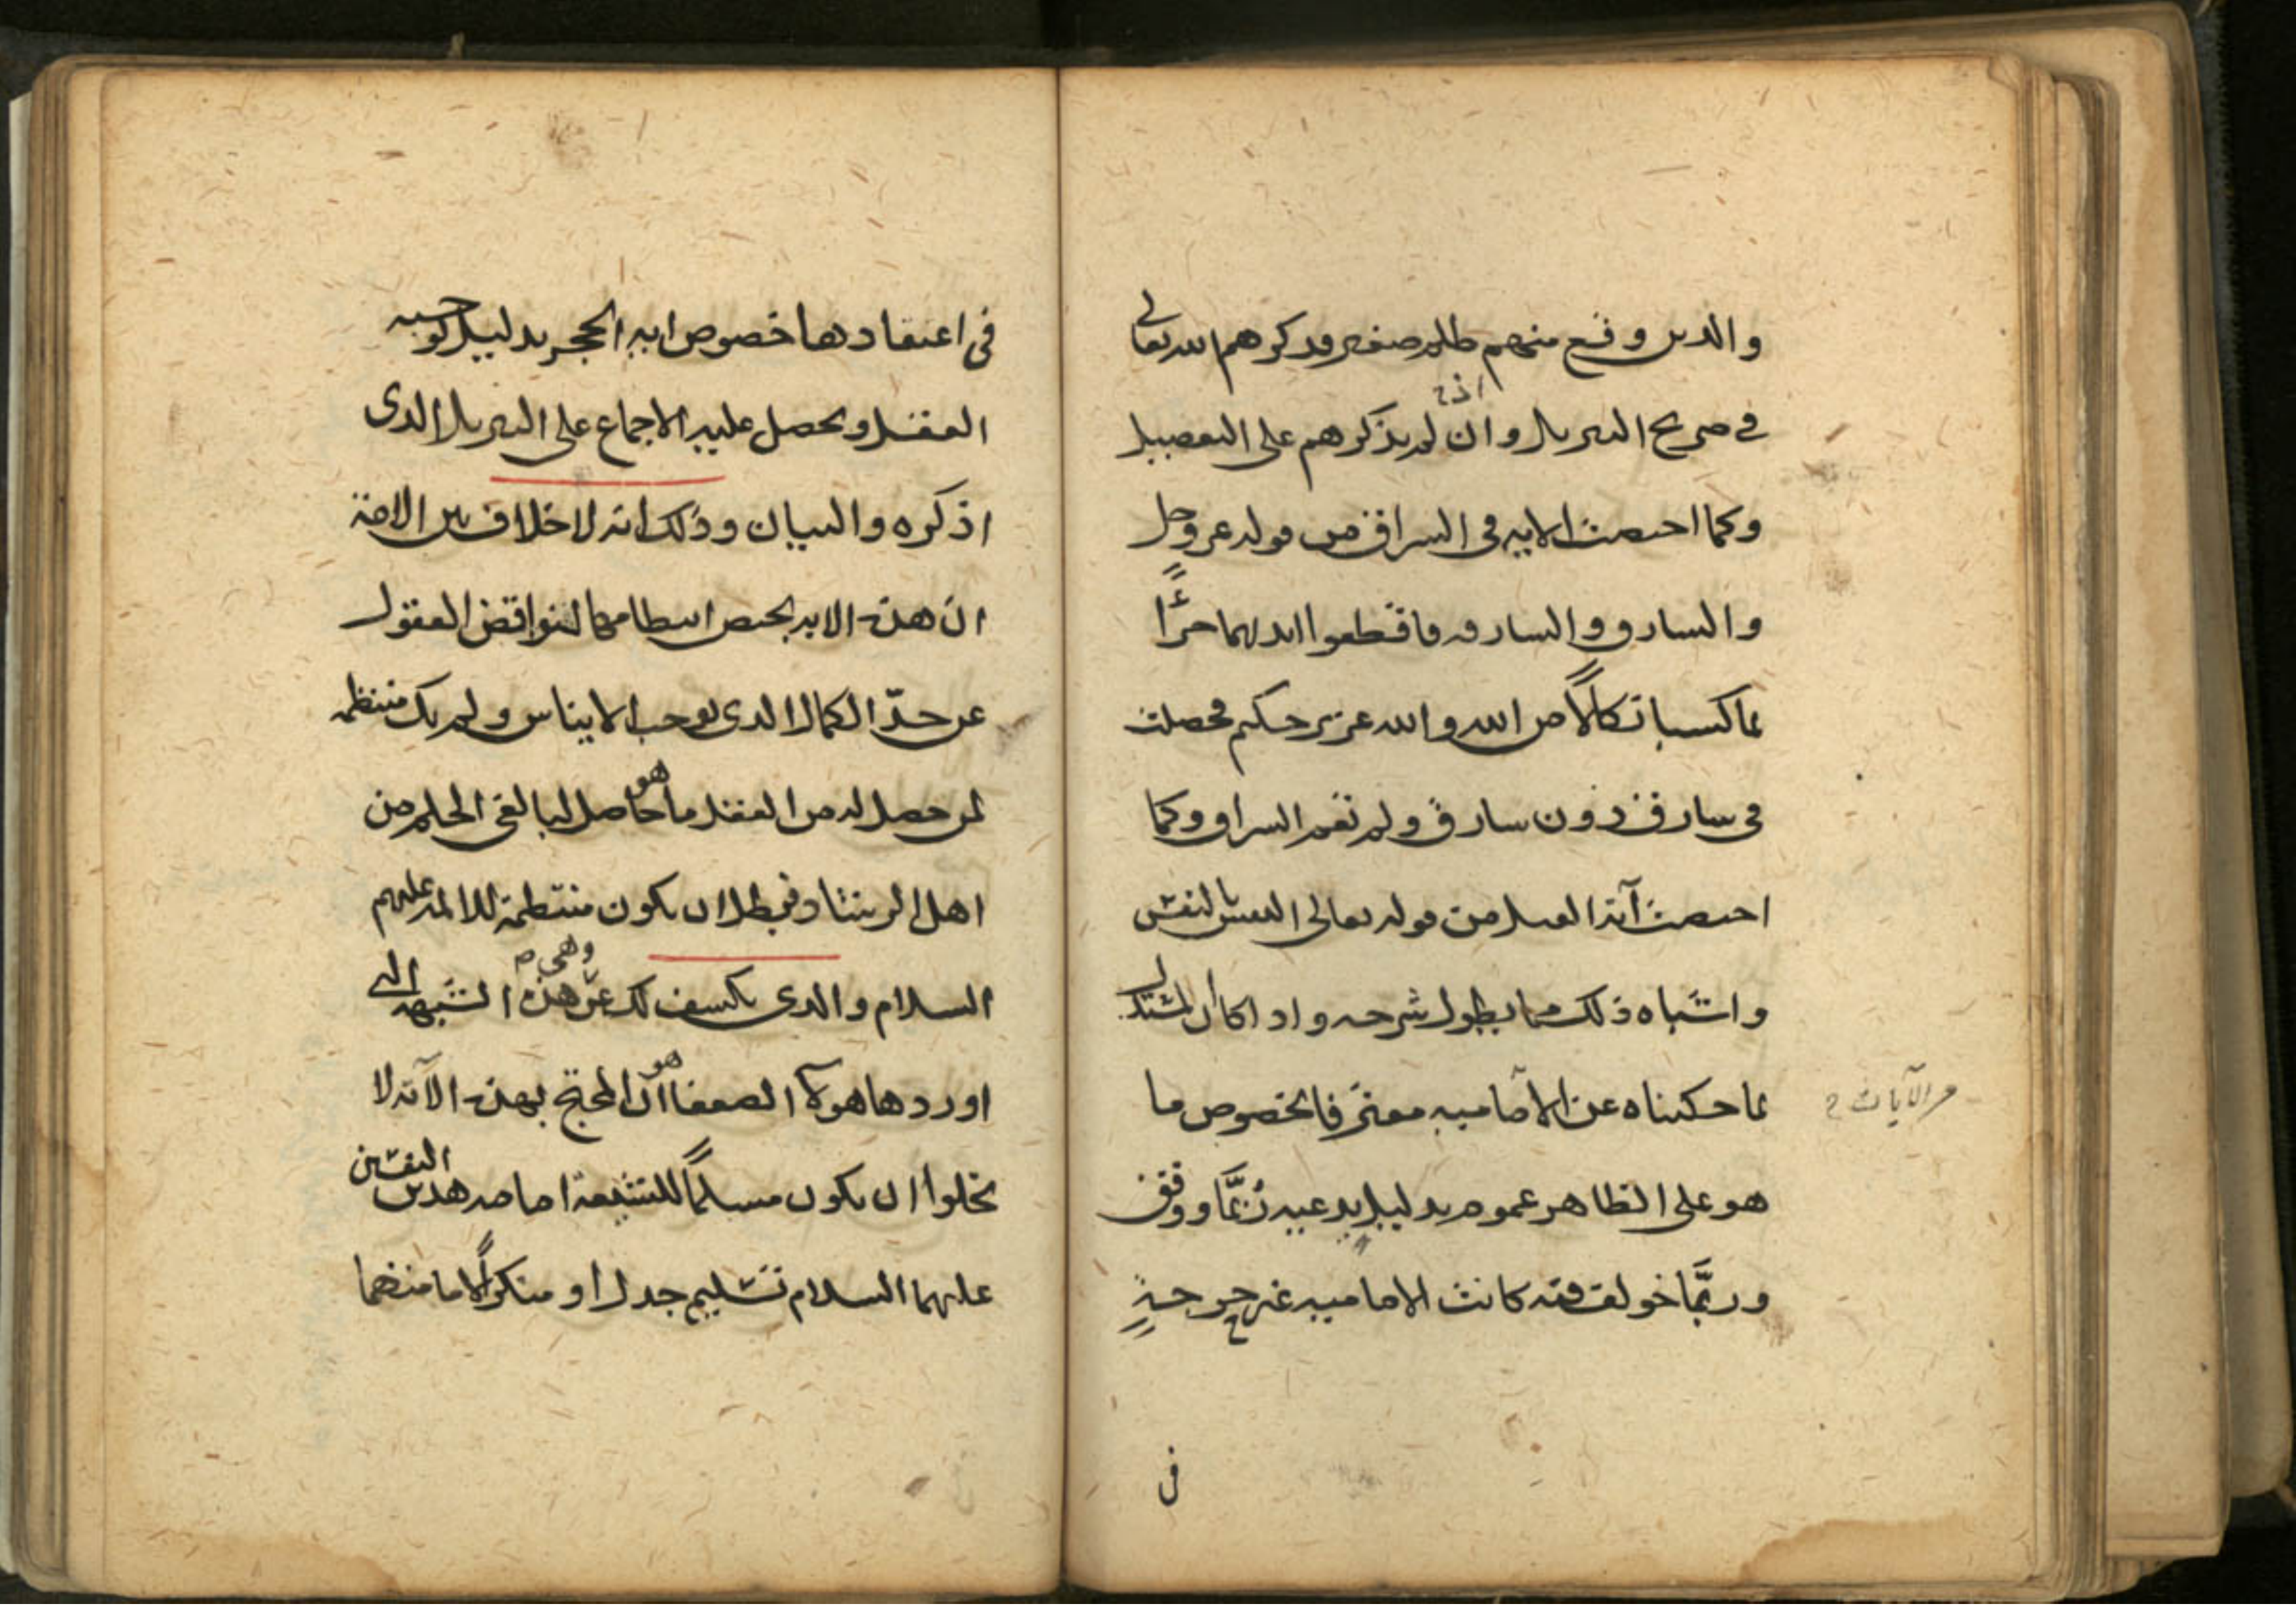 والذين وقع منهم ظلم صغير قد ذكرهم الله تعالى
في صريح التنزيل وان لم يذكرهم على التفصيل
وكما اختصت الاية في السراق من قوله عز وجل
والسارق والسارقة فاقطعوا ايديهما جزاءً
بما كسبا نكالاً من الله والله عزيز حكيم فحصلت
في سارق دون سارق ولم تعم السراق وكما
اختصت آية القتل من قوله تعالى النفس بالنفس
واشباه ذلك مما يطول شرحه واذا كان المستدل
بما حكيناه عن الامامية معترفا بخصوص ما
من الآيات
هو على الظاهر عموم بدليل يدعيه ربّما ووفق
وربّما خولف فيه كانت الامامية غير حرجة
في
في اعتقادها خصوص اية الحجر بدليل توجبه
العقل ويحصل عليه الاجماع على التنزيل الذي
اذكره والبيان وذلك انه لا خلاف بين الامة
ان هذه الاية يختص انتظامها لنواقض العقول
عن حدّ الكمال الذي يوجب الايناس ولم يك منتظمة
لمن حصل له من العقل ما هو حاصل لبالغي الحلم من
اهل الرشاد فبطل ان يكون منتظمة للائمة عليهم
السلام والذي يكشف لك عن وهي هذه الشبهة التي
اوردها هولآء الضعفا هو ان المحتج بهذه الآية لا
يخلوا ان يكون مسلماً للشيعة امامة هذين النفسين
عليهما السلام تسليم جدل او منكراً لامامتهما